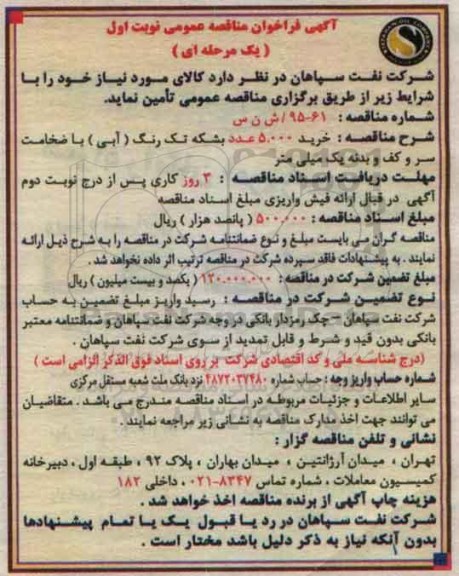 آگهی فراخوان مناقصه عمومی نوبت اول
( یک مرحله ای )
شرکت نفت سپاهان در نظر دارد کالای مورد نیاز خود را با
شرایط زیر از طریق برگزاری مناقصه عمومی تأمین نماید.
شماره مناقصه : ۶۱-۹۵ / ش ن س
شرح مناقصه : خرید ۵,۰۰۰ عدد بشکه تک رنگ ( آبی ) با ضخامت
سر و کف و بدنه یک میلی متر
مهلت دریافت اسناد مناقصه : ۳ روز کاری پس از درج نوبت دوم
آگهی در قبال ارائه فیش واریزی مبلغ اسناد مناقصه
مبلغ اسناد مناقصه : ۵۰۰,۰۰۰ ( پانصد هزار ) ریال
مناقصه گران می بایست مبلغ و نوع ضمانتنامه شرکت در مناقصه را به شرح ذیل ارائه
نمایند . به پیشنهادات فاقد سپرده شرکت در مناقصه ترتیب اثر داده نخواهد شد .
مبلغ تضمین شرکت در مناقصه : ۱۲۰,۰۰۰,۰۰۰ ( یکصد و بیست میلیون ) ریال
نوع تضمین شرکت در مناقصه : رسید واریز مبلغ تضمین به حساب
شرکت نفت سپاهان – چک رمزدار بانکی در وجه شرکت نفت سپاهان و ضمانتنامه معتبر
بانکی بدون قید و شرط و قابل تمدید از سوی شرکت نفت سپاهان .
(درج شناسه ملی و کد اقتصادی شرکت بر روی اسناد فوق الذکر الزامی است )
شماره حساب واریز وجه : حساب شماره ۴۸۷۲۰۳۷۴۸۰ نزد بانک ملت شعبه مستقل مرکزی
سایر اطلاعات و جزئیات مربوطه در اسناد مناقصه مندرج می باشد . متقاضیان
می توانند جهت اخذ مدارک مناقصه به نشانی زیر مراجعه نمایند .
نشانی و تلفن مناقصه گزار :
تهران ، میدان آرژانتین ، میدان بهاران ، پلاک ۹۲ ، طبقه اول ، دبیرخانه
کمیسیون معاملات ، شماره تماس ۸۳۴۷-۰۲۱ ، داخلی ۱۸۲
هزینه چاپ آگهی از برنده مناقصه اخذ خواهد شد .
شرکت نفت سپاهان در رد یا قبول یک یا تمام پیشنهادها
بدون آنکه نیاز به ذکر دلیل باشد مختار است .